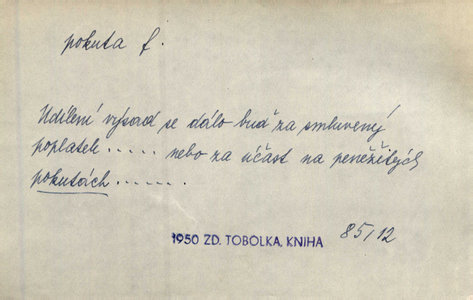 pokuta f.
Udílení výsad se dálo buď za smluvený
poplatek ..... nebo za účast na peněžitých
pokutách .......
1950 ZD. TOBOLKA, KNIHA 85/12